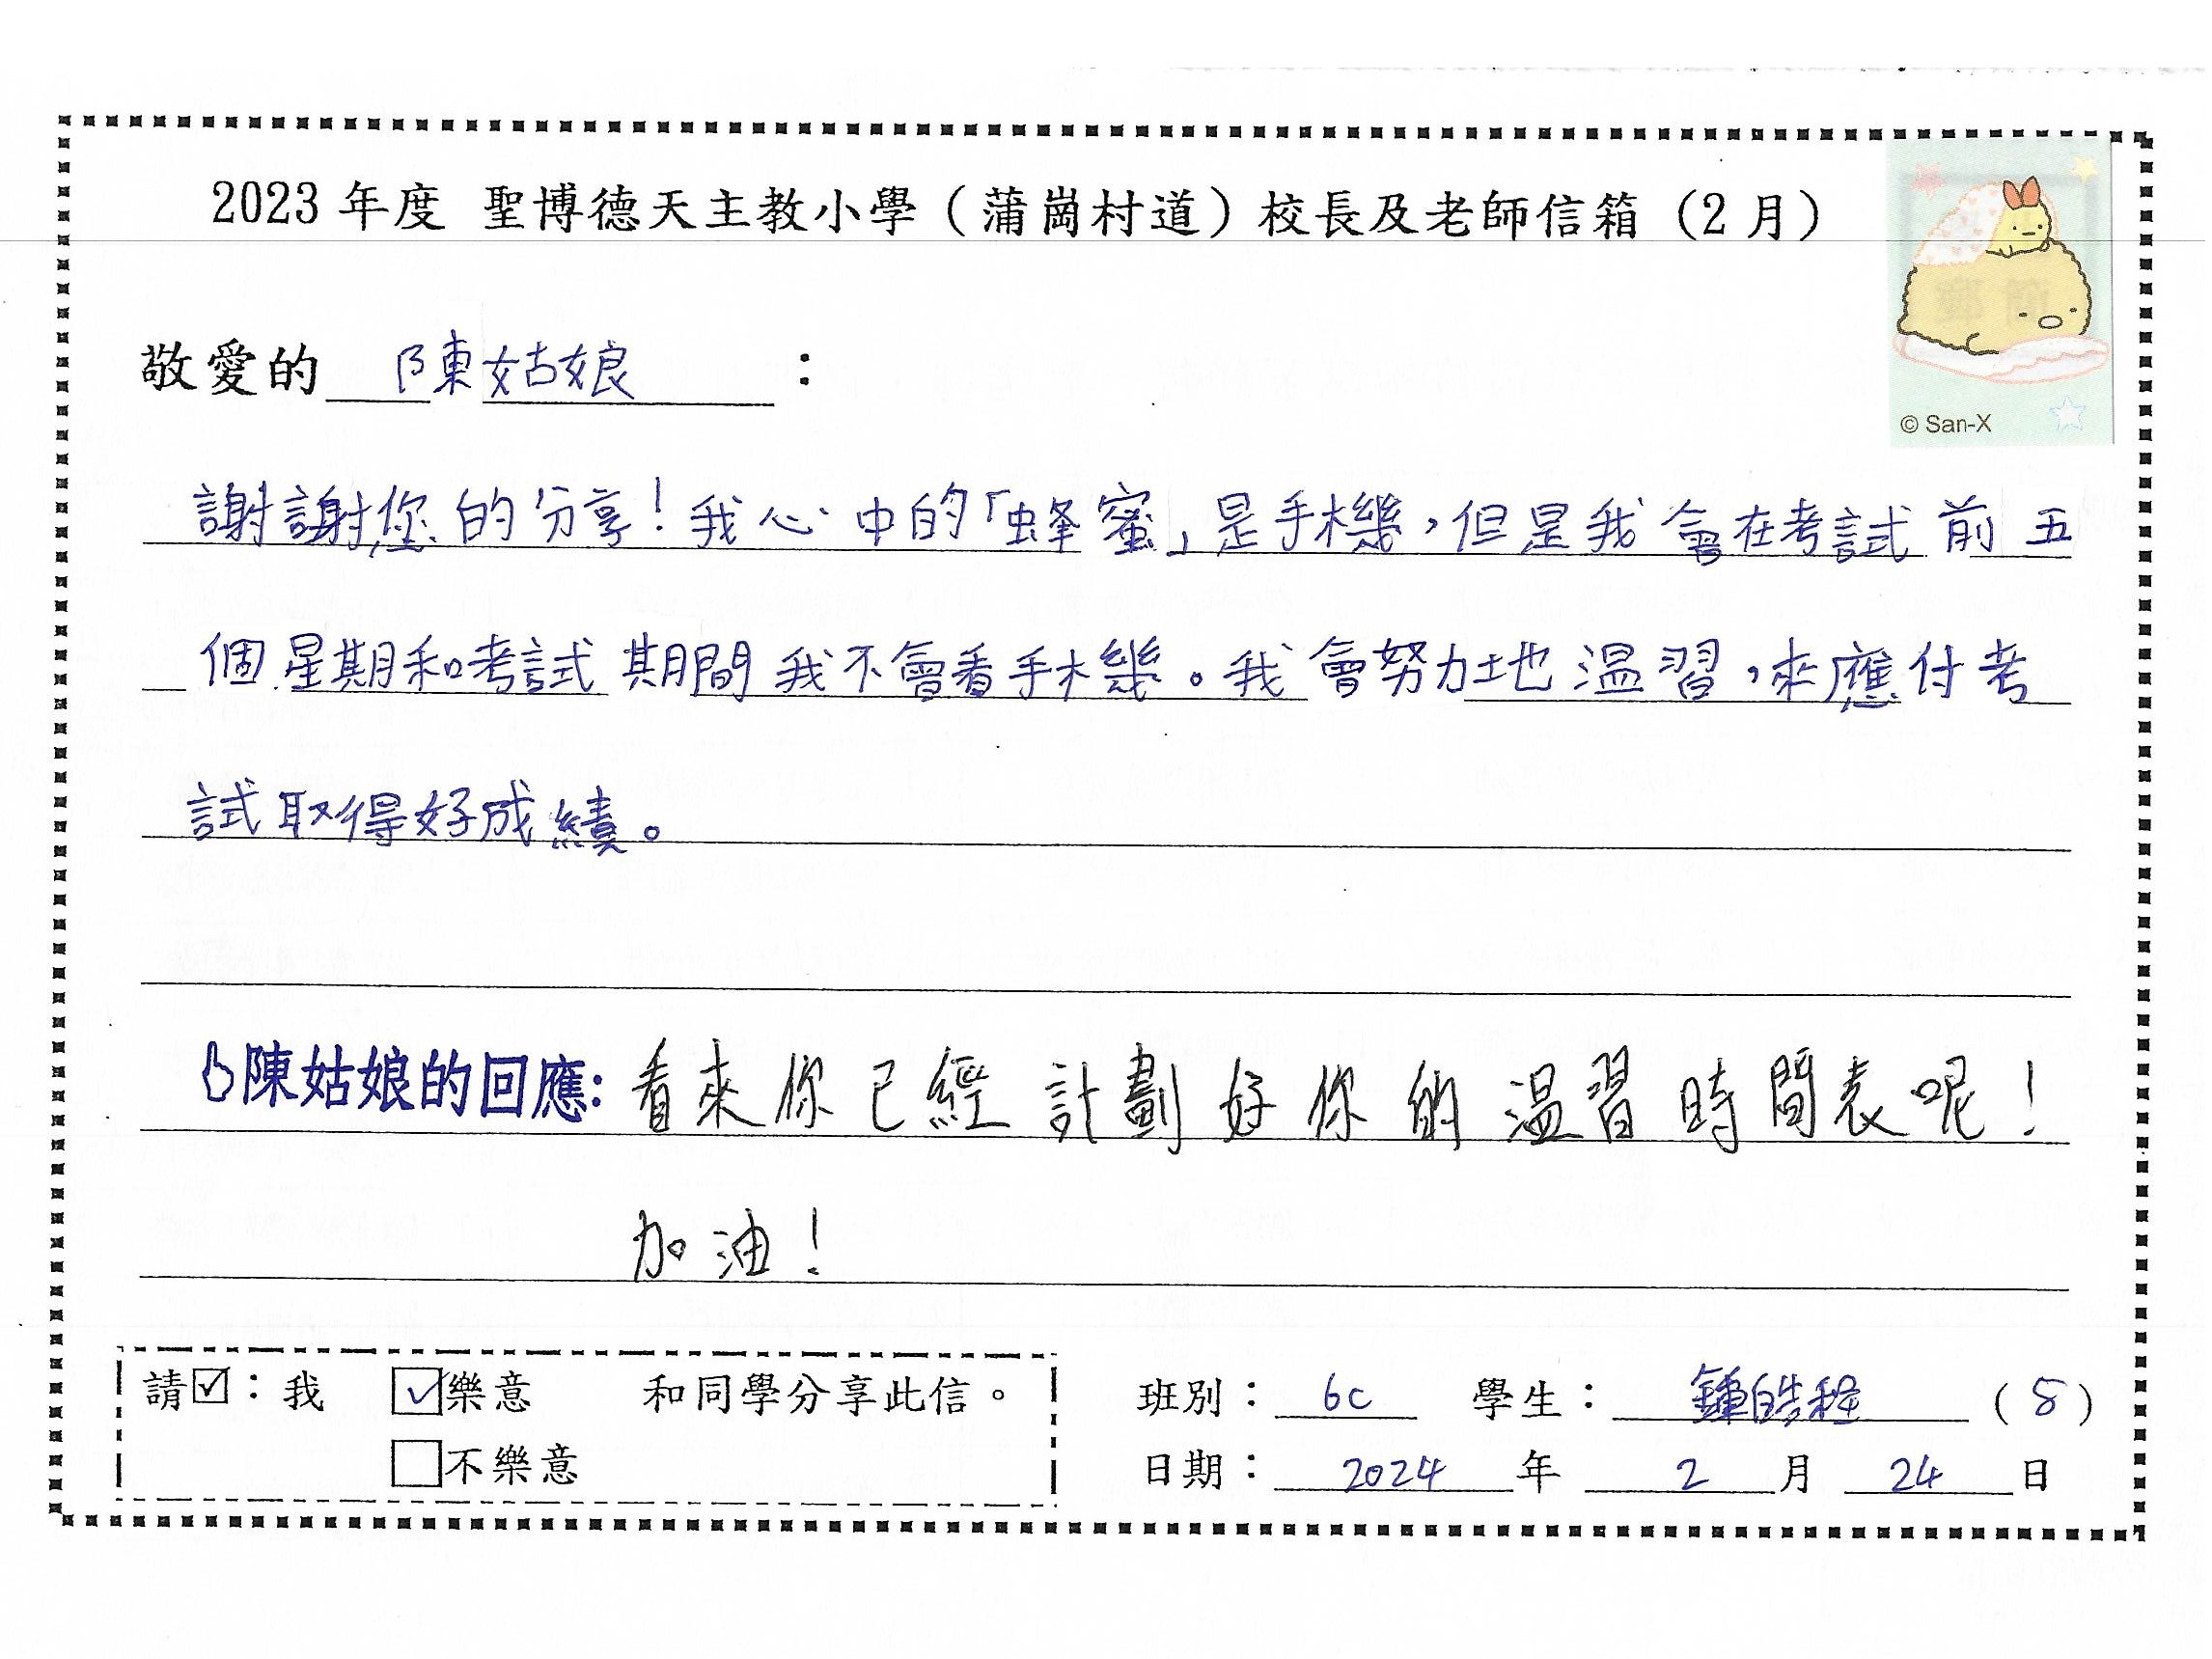 2023 年度 聖博德天主教小學（蒲崗村道）校長及老師信箱（2 月）
© San-X
敬愛的 陳姑娘 ：
謝謝您的分享！我心中的「蜂蜜」是手機，但是我會在考試前五
個星期和考試期間我不會看手機。我會努力地溫習，來應付考
試取得好成績。
陳姑娘的回應: 看來你已經計劃好你的溫習時間表呢！
加油！
請☑：我 ☑樂意 和同學分享此信。
□不樂意
班別： 6C 學生： 鍾皓程 (5)
日期： 2024 年 2 月 24 日